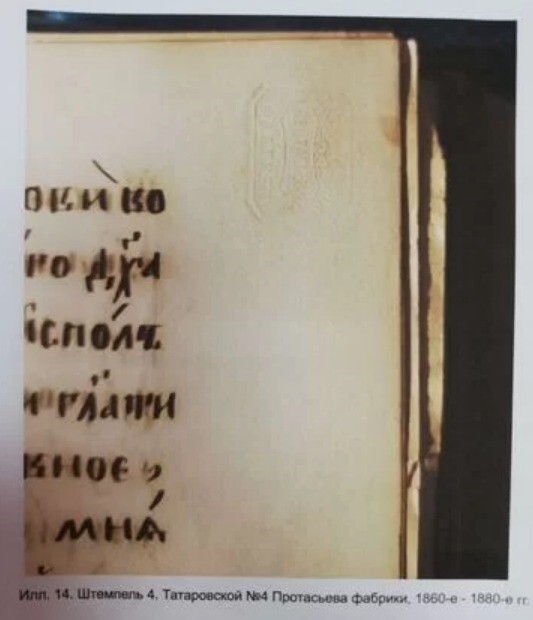 ови ко
но дх҃а
исполч
и гл҃ати
вное
мна́
Илл. 14. Штемпель 4. Татаровской №4 Протасьева фабрики, 1860-е - 1880-е гг.